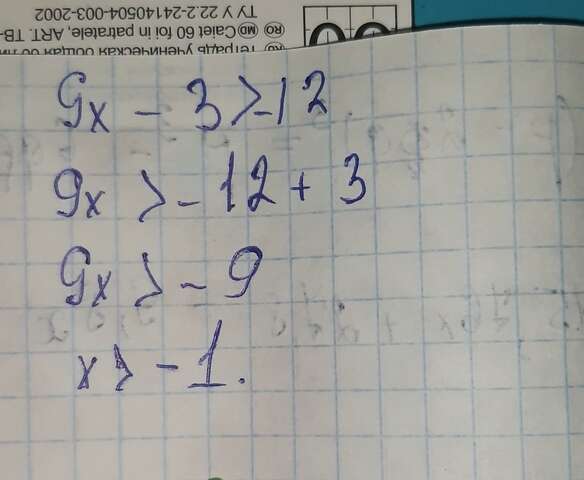 ТУ У 22.2-24140504-003-2002
MD Caiet 60 foi in patratele, ART. TB-
тетрадь ученическая общая 60 ли
9x - 3 > -12
9x > - 12 + 3
9x > - 9
x > - 1.